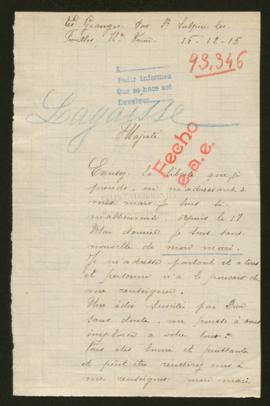 Les Granges par St Sulpice les
Feuilles, Hte Vienne 15-12-15
93,346
A
Pedir informes
Que se hace así
Devolver
Lagaisse
Majesté
Fecho
e.a.e.
Excusez la liberté que je
prends en m'adressant à
vous mais je suis si
malheureuse depuis le 17
Mai dernier je suis sans
nouvelle de mon mari.
Je m'adresse partout et à tous
et personne n'a le pouvoir de
me renseigner.
Une idée suscitée par Dieu
sans doute me pousse à vous
implorer à votre tour
vous êtes bonne et puissante
et peut être réussirez vous à
me renseigner mon mari